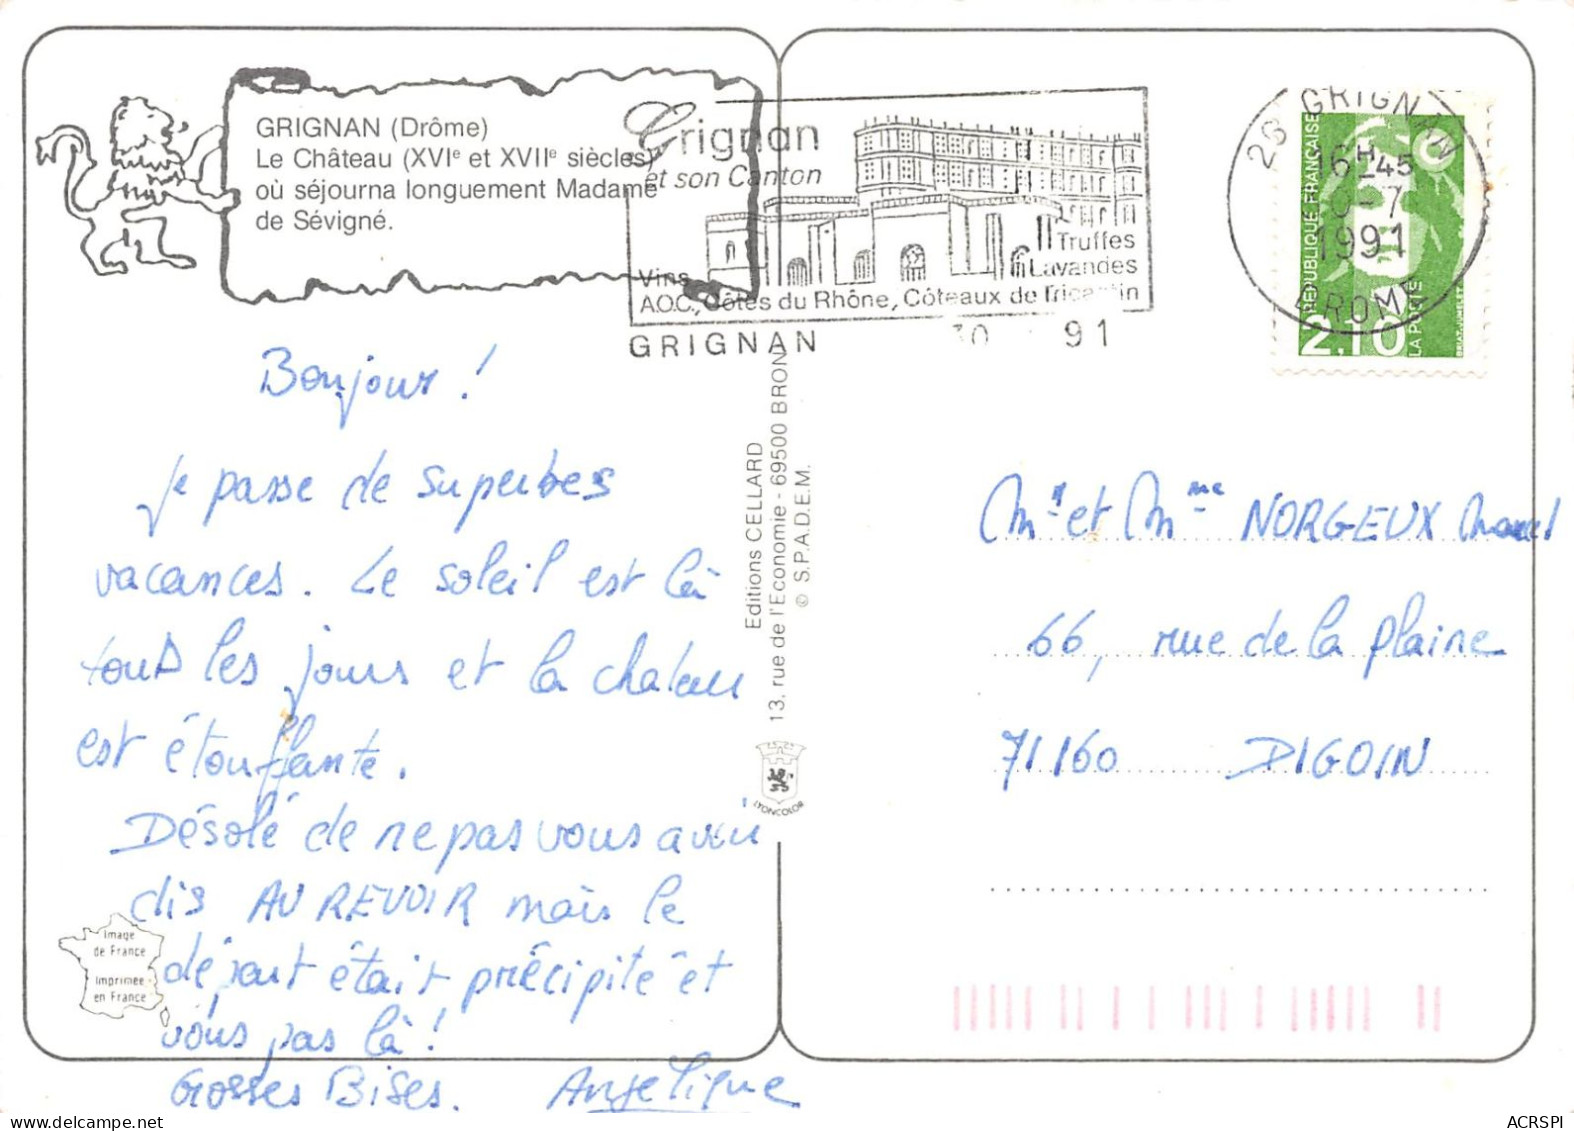 GRIGNAN (Drôme)
Le Château (XVIe et XVIIe siècles)
où séjourna longuement Madame
de Sévigné.
Grignan
et son Canton
Truffes
Vins
Lavandes
A.O.C., Côtes du Rhône, Côteaux de Tricastin
GRIGNAN
30 91
26 GRIGNAN
16H45
-7
1991
DROME
REPUBLIQUE FRANÇAISE
2,10
LA POSTE
Bonjour !
Je passe de superbes
vacances. Le soleil est là
tous les jours et la chaleur
est étouffante.
Désolé de ne pas vous avoir
dis AU REVOIR mais le
départ était précipité et
vous pas là !
Grosses Bises. Angelique
Editions CELLARD
13, rue de l'Economie - 69500 BRON
© S.P.A.D.E.M.
LYONCOLOR
Image
de France
Imprimée
en France
Mr et Mme NORGEUX Marcel
66, rue de la plaine
71160 DIGOIN
ACRSPI